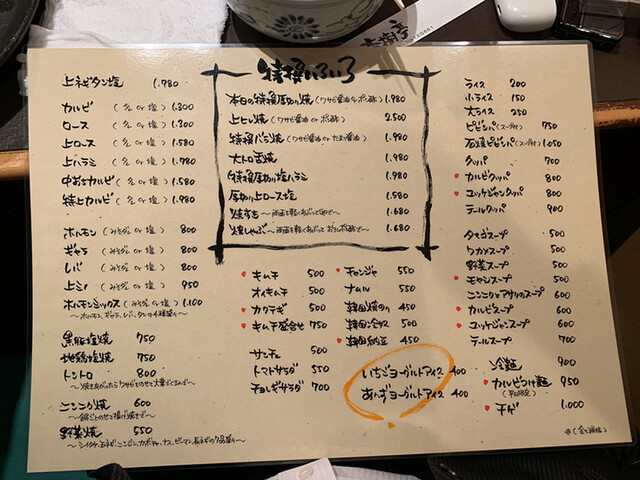 上ネギタン塩 1.780
カルビ（タレ or 塩） 1.300
ロース（タレ or 塩） 1.300
上ロース（タレ or 塩） 1.580
上ハラミ（タレ or 塩） 1.780
中おちカルビ（タレ or 塩） 1.580
特上カルビ（タレ or 塩） 1.980
ホルモン（みそダレ or 塩） 800
ギャラ（みそダレ or 塩） 800
レバ（みそダレ or 塩） 800
上ミノ（みそダレ or 塩） 950
ホルモンミックス（みそダレ or 塩） 1.100
〜ホルモン、ギャラ、レバ、タンの4種盛り〜
黒豚塩焼 750
地鶏塩焼 750
トントロ 800
ニンニク焼 600
野菜焼 550
〜シイタケ、玉ネギ、ニンジン、カボチャ、ナス、ピーマン、長ネギの7品盛り〜
特撰いろいろ
本日の特撰厚切り焼（ワサビ醤油 or ポン酢） 1.980
上ヒレ焼（ワサビ醤油 or ポン酢） 2.500
特撰バラ焼（ワサビ醤油 or たまり醤油） 1.980
大トロ舌焼 1.980
特撰厚切り塩ハラミ 1.980
厚切り上ロース塩 1.580
焼すき 〜両面を軽くあぶって卵で〜 1.680
焼しゃぶ 〜両面を軽くあぶっておろしポン酢で〜 1.680
キムチ 500
オイキムチ 500
カクテギ 500
キムチ盛合せ 750
サンチュ 500
トマトサラダ 550
チョレギサラダ 700
チャンジャ 550
ナムル 550
韓国焼のり 450
韓国冷奴 500
韓国納豆 450
いちごヨーグルトアイス 400
あんずヨーグルトアイス 400
ライス 200
小ライス 150
大ライス 250
ビビンバ（スープ付） 750
石焼ビビンバ（スープ付） 1.050
クッパ 700
カルビクッパ 800
ユッケジャンクッパ 800
テールクッパ 900
タマゴスープ 500
ワカメスープ 500
野菜スープ 500
モヤシスープ 500
ニンニクとアサリのスープ 600
カルビスープ 600
ユッケジャンスープ 600
テールスープ 700
冷麺 900
カルビうけ麺 950
チゲ 1.000